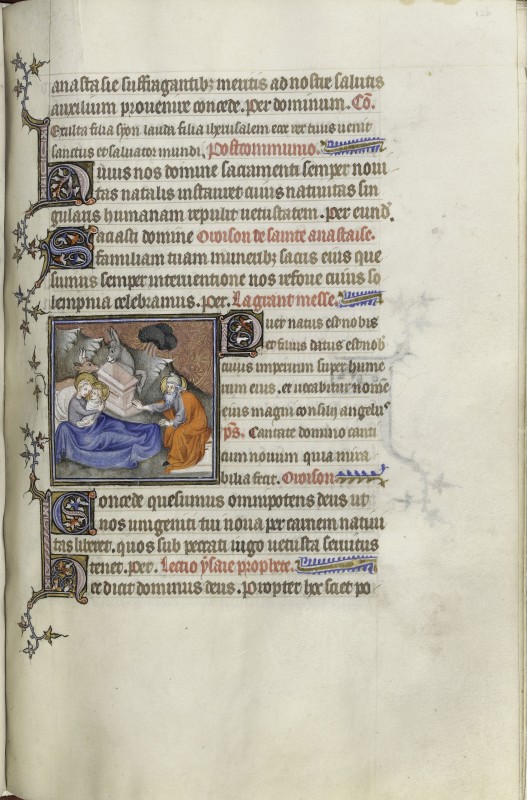 anastasie suffragantibz meritis ad nostre salutis
auxilium prouenire concede. Per dominum. Co.
Exulta filia syon lauda filia iherusalem ecce rex tuus uenit
sanctus et saluator mundi. Postcommunio.
Huius nos domine sacramenti semper noui
tas natalis instauret cuius natiuitas sin
gularis humanam repulit uetustatem. Per eund.
Saciasti domine Oroison de sainte anastaise.
familiam tuam muneribz sacris eius que
sumus semper interuentione nos refoue cuius so
lempnia celebramus. Per. La grant messe.
Puer natus est nobis
et filius datus est nob
cuius imperium super hume
rum eius. et uocabitur nomen
eius magni consilij angelus
ps. Cantate domino canti
cum nouum quia mira
bilia fecit. Oroison
Concede quesumus omnipotens deus ut
nos unigeniti tui noua per carnem natiui
tas liberet. quos sub peccati iugo uetusta seruitus
tenet. Per. Lectio ysaie prophete.
Hec dicit dominus deus. Propter hoc sciet po